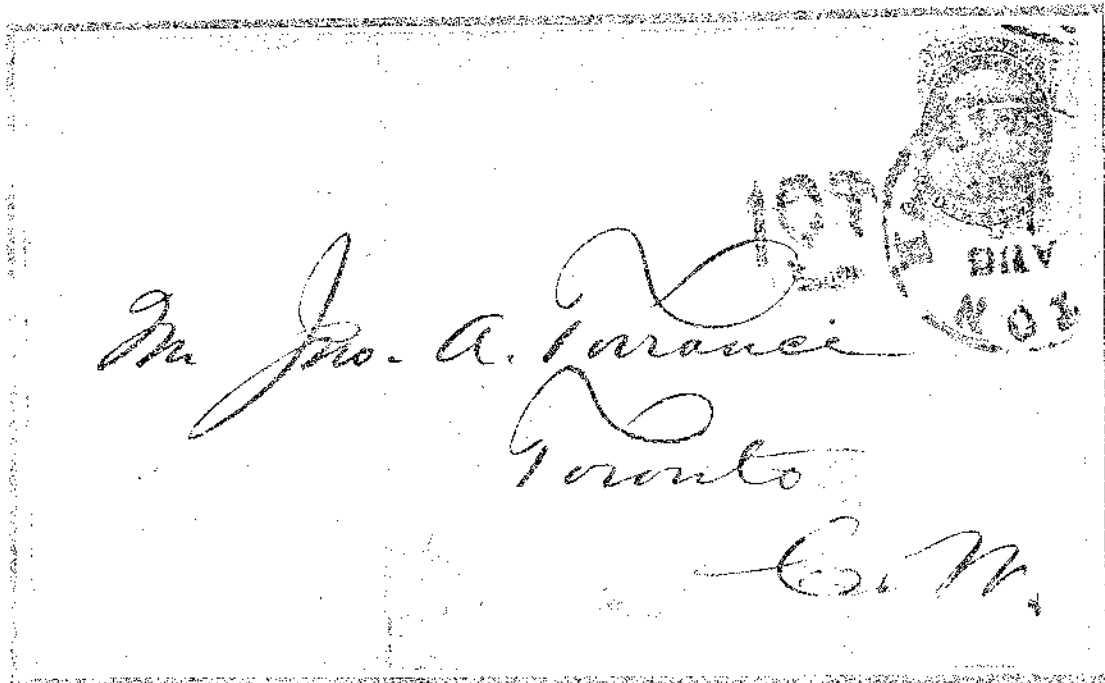 10 CTS
AUG
Mr. Jno. A. Torrance
Toronto
C. W.